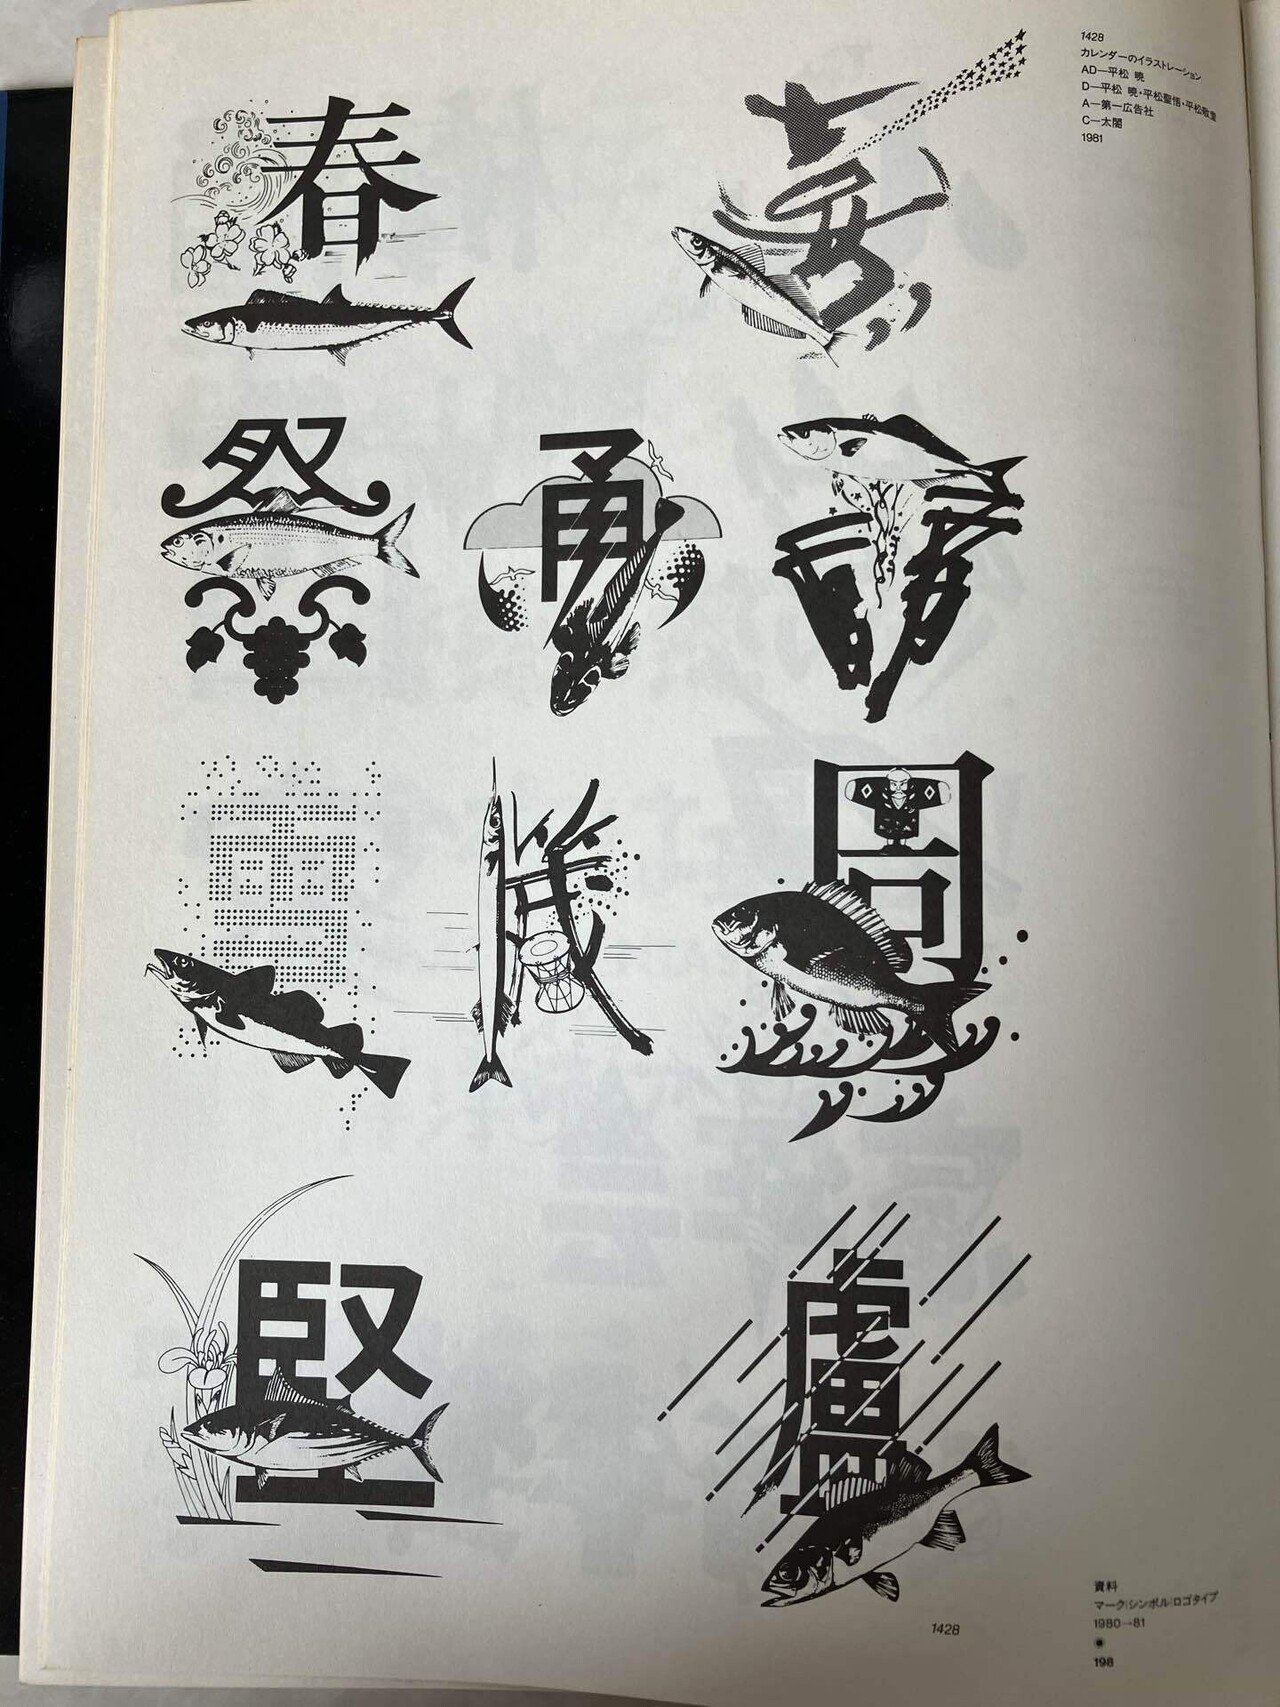 1428
カレンダーのイラストレーション
AD—平松 暁
D—平松 暁・平松聖悟・平松
A—第一広告社
C—太閤
1981
春
喜
祭
甬
雪
箴
周
堅
盧
1428
資料
マーク|シンボル|ロゴタイプ
1980→81
198